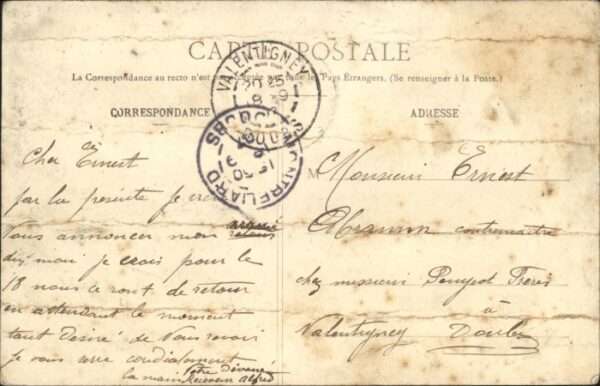 CARTE POSTALE
La Correspondance au recto n'est pas acceptée par tous les Pays Étrangers. (Se renseigner à la Poste.)
CORRESPONDANCE
ADRESSE
VALENTIGNEY
DOUBS
MONTBELIARD
DOUBS
Cher Ernest
par la présente je crois
Vous annoncer mon retour
mai je crois pour le
18 nous ront de retour
en attendant le moment
tant désiré de Vous revoir
je vous serre cordialement
la main Votre Dévoué
Alfred
M Monsieur Ernest
contremaitre
chez messieurs Peugeot Frères
à
Valentigney Doubs